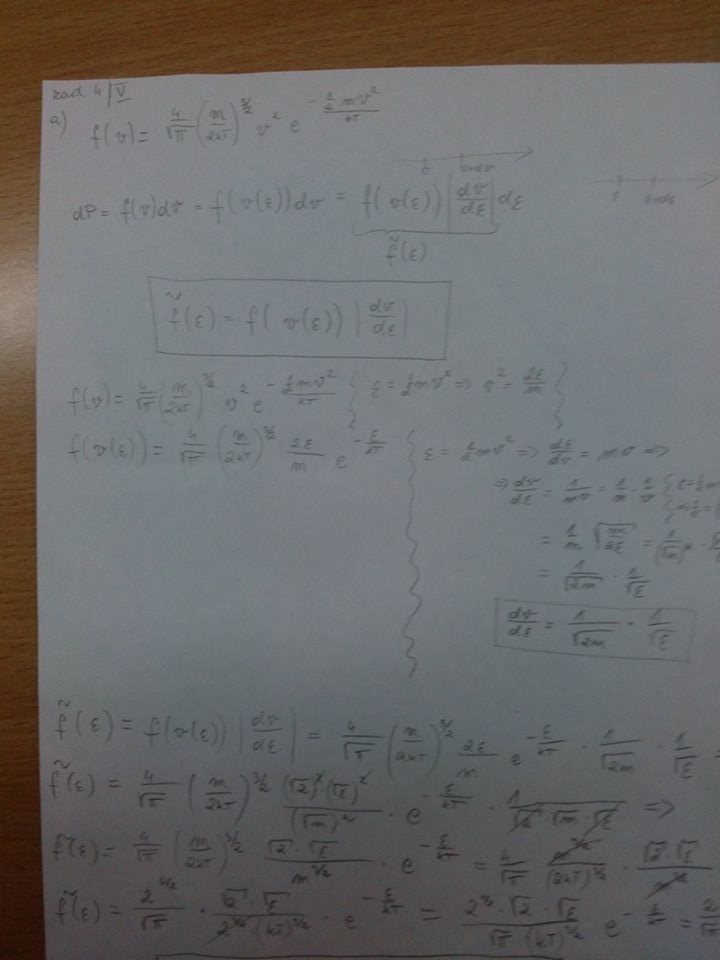 zad. 4 | V
a) f(v) = 4/√π (m/2kT)^3/2 v² e^-(½mv²/kT)
v v+dv
ε ε+dε
dP = f(v)dv = f(v(ε))dv = f(v(ε)) |dv/dε| dε
f̃(ε)
f̃(ε) = f(v(ε)) |dv/dε|
f(v) = 4/√π (m/2kT)^3/2 v² e^-(½mv²/kT) { ε = ½mv² => v² = 2ε/m }
f(v(ε)) = 4/√π (m/2kT)^3/2 2ε/m e^-(ε/kT)
{ ε = ½mv² => dε/dv = mv =>
=> dv/dε = 1/mv = 1/m · 1/v
= 1/m √(m/2ε) = 1/(√m)² ·
= 1/√2m · 1/√ε
dv/dε = 1/√2m · 1/√ε
f̃(ε) = f(v(ε)) |dv/dε| = 4/√π (m/2kT)^3/2 2ε/m e^-(ε/kT) · 1/√2m · 1/√ε =
f̃(ε) = 4/√π (m/2kT)^3/2 (√2)²·(√ε)²/(√m)² · e^-(ε/kT) · 1/(√2·√m·√ε) =>
f̃(ε) = 4/√π (m/2kT)^3/2 √2·√ε/m^3/2 · e^-(ε/kT) = 4/√π m^3/2/(2kT)^3/2 · √2·√ε/m^3/2
f̃(ε) = 2^4/2/√π · √2·√ε/(2^3/2·(kT)^3/2) · e^-(ε/kT) = 2^½·√2·√ε/(√π(kT)^3/2) e^-(ε/kT) = 2/√π